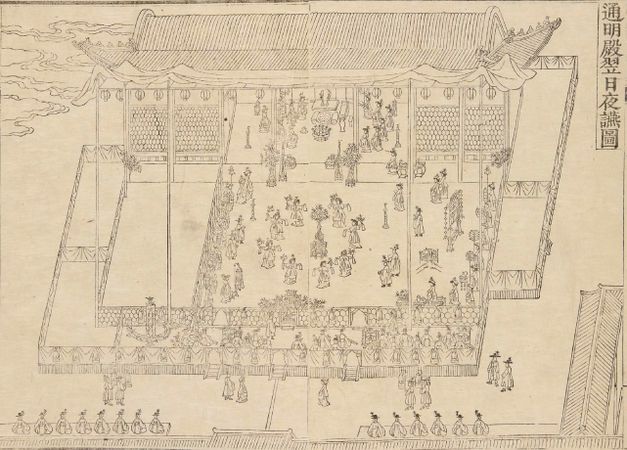 通明殿翌日夜讌圖